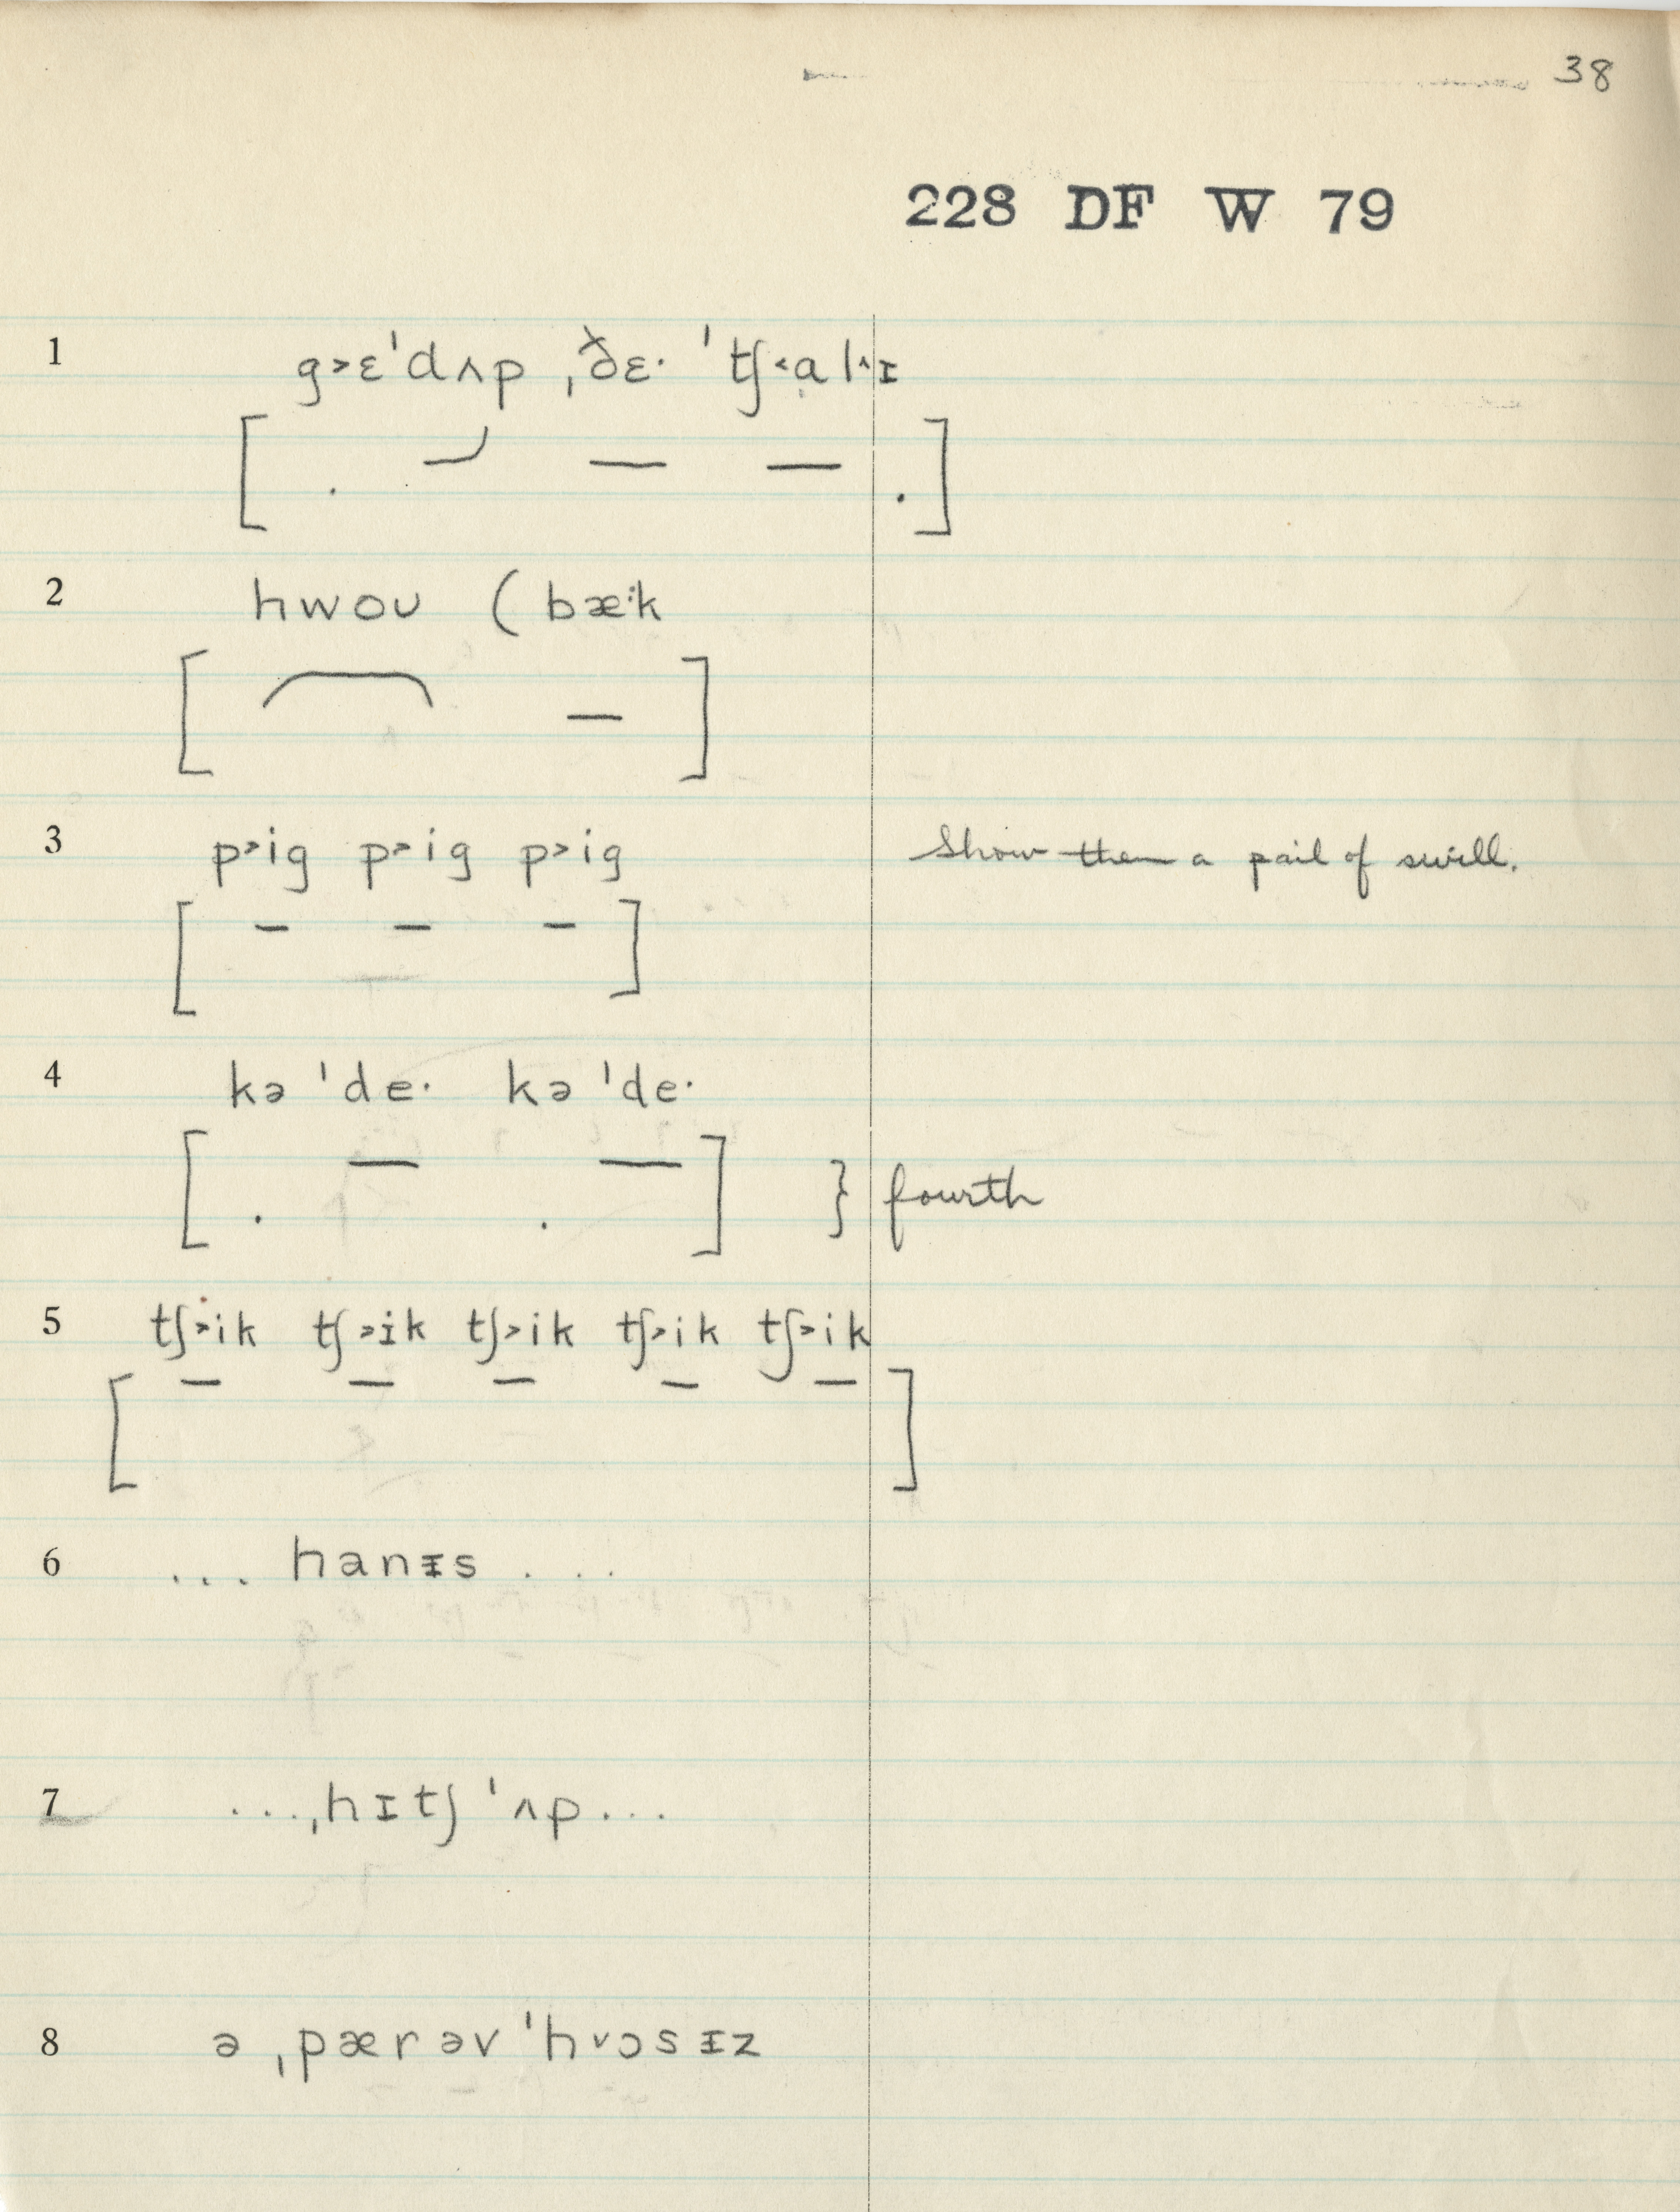 38
228 DF W 79
1 g˃ɛˈdʌp ˌðɛ· ˈtʃ˂a̤l˄ɪ
[ . . ]
2 hwoʊ ( bæ·k
[ ]
3 p˃ig p˃ig p˃ig Show them a pail of swill.
[ ]
4 kə ˈde· kə ˈde·
[ . . ] } fourth
5 tʃ˃ik tʃ˃ɪk tʃ˃ik tʃ˃ik tʃ˃ik
[ ]
6 ... hanᵻs ...
7 ...ˌhɪtʃ ˈʌp...
8 ə ˌpær əv ˈh˅ɔsᵻz